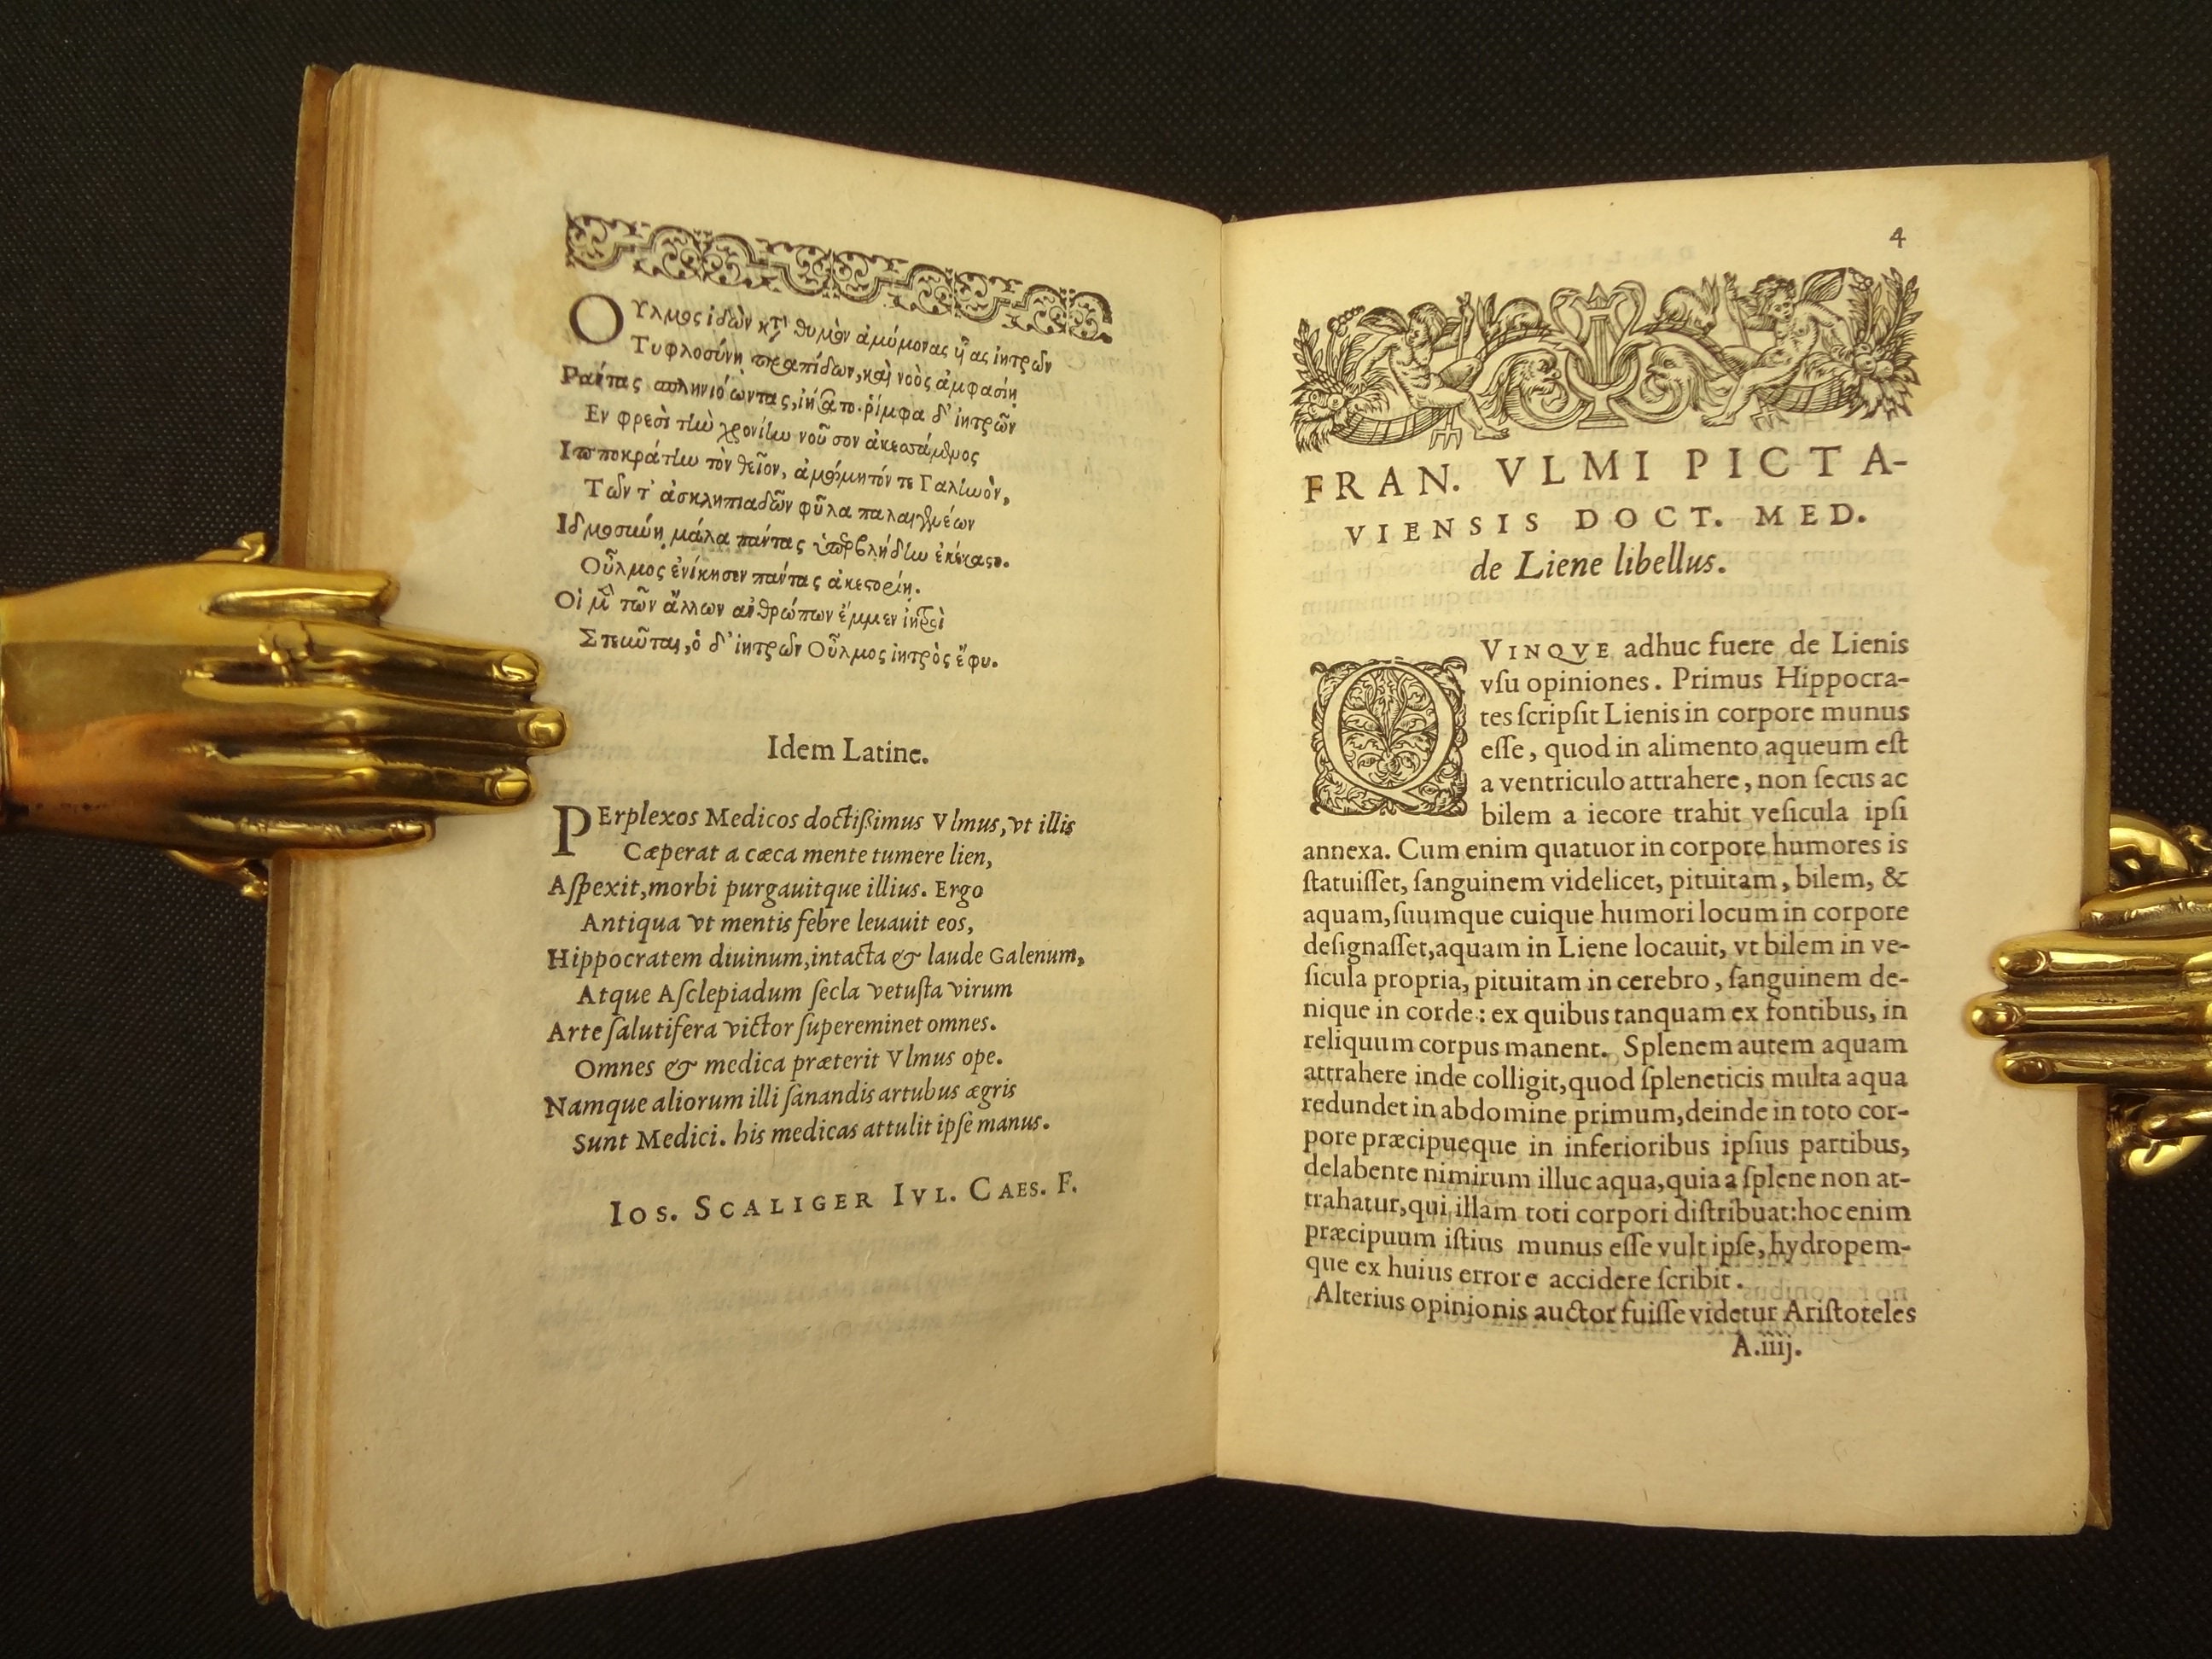 ΟΥλμος ἰδὼν κατὰ θυμὸν ἀμύμονας υἷας ἰητρῶν
Τυφλοσύνῃ πραπίδων, καὶ νοὸς ἀμφασίῃ
Ῥαίτας σπληνιόωντας, ἰήσατο. ῥίμφα δ' ἰητρῶν
Ἐν φρεσὶ τὴν χρονίην νοῦσον ἀκεσσάμενος
Ἱπποκράτην τὸν θεῖον, ἀμώμητόν τε Γαληνὸν,
Τῶν τ' ἀσκληπιαδῶν φῦλα παλαιγενέων
Ἰδμοσύνῃ μάλα πάντας ὑπερβλήδην ἐκέκαστο.
Οὖλμος ἐνίκησεν πάντας ἀκεστορίῃ.
Οἱ μὲν τῶν ἄλλων ἀνθρώπων ἔμμεν ἰητροὶ
Στεῦνται, ὁ δ' ἰητρῶν Οὖλμος ἰητρὸς ἔφυ.
Idem Latine.
PErplexos Medicos doctißimus Vlmus, vt illis
Cæperat a cæca mente tumere lien,
Aſpexit, morbi purgauitque illius. Ergo
Antiqua vt mentis febre leuauit eos,
Hippocratem diuinum, intacta & laude Galenum,
Atque Aſclepiadum ſecla vetuſta virum
Arte ſalutifera victor ſupereminet omnes.
Omnes & medica præterit Vlmus ope.
Namque aliorum illi ſanandis artubus ægris
Sunt Medici. his medicas attulit ipſe manus.
IOS. SCALIGER IVL. CAES. F.
4
FRAN. VLMI PICTA-
VIENSIS DOCT. MED.
de Liene libellus.
QVINQVE adhuc fuere de Lienis
vſu opiniones. Primus Hippocra-
tes ſcripſit Lienis in corpore munus
eſſe, quod in alimento aqueum eſt
a ventriculo attrahere, non ſecus ac
bilem a iecore trahit veſicula ipſi
annexa. Cum enim quatuor in corpore humores is
ſtatuiſſet, ſanguinem videlicet, pituitam, bilem, &
aquam, ſuumque cuique humori locum in corpore
deſignaſſet, aquam in Liene locauit, vt bilem in ve-
ſicula propria, pituitam in cerebro, ſanguinem de-
nique in corde: ex quibus tanquam ex fontibus, in
reliquum corpus manent. Splenem autem aquam
attrahere inde colligit, quod ſpleneticis multa aqua
redundet in abdomine primum, deinde in toto cor-
pore præcipueque in inferioribus ipſius partibus,
delabente nimirum illuc aqua, quia a ſplene non at-
trahatur, qui illam toti corpori diſtribuat: hoc enim
præcipuum iſtius munus eſſe vult ipſe, hydropem-
que ex huius errore accidere ſcribit.
Alterius opinionis auctor fuiſſe videtur Ariſtoteles
A.iiij.